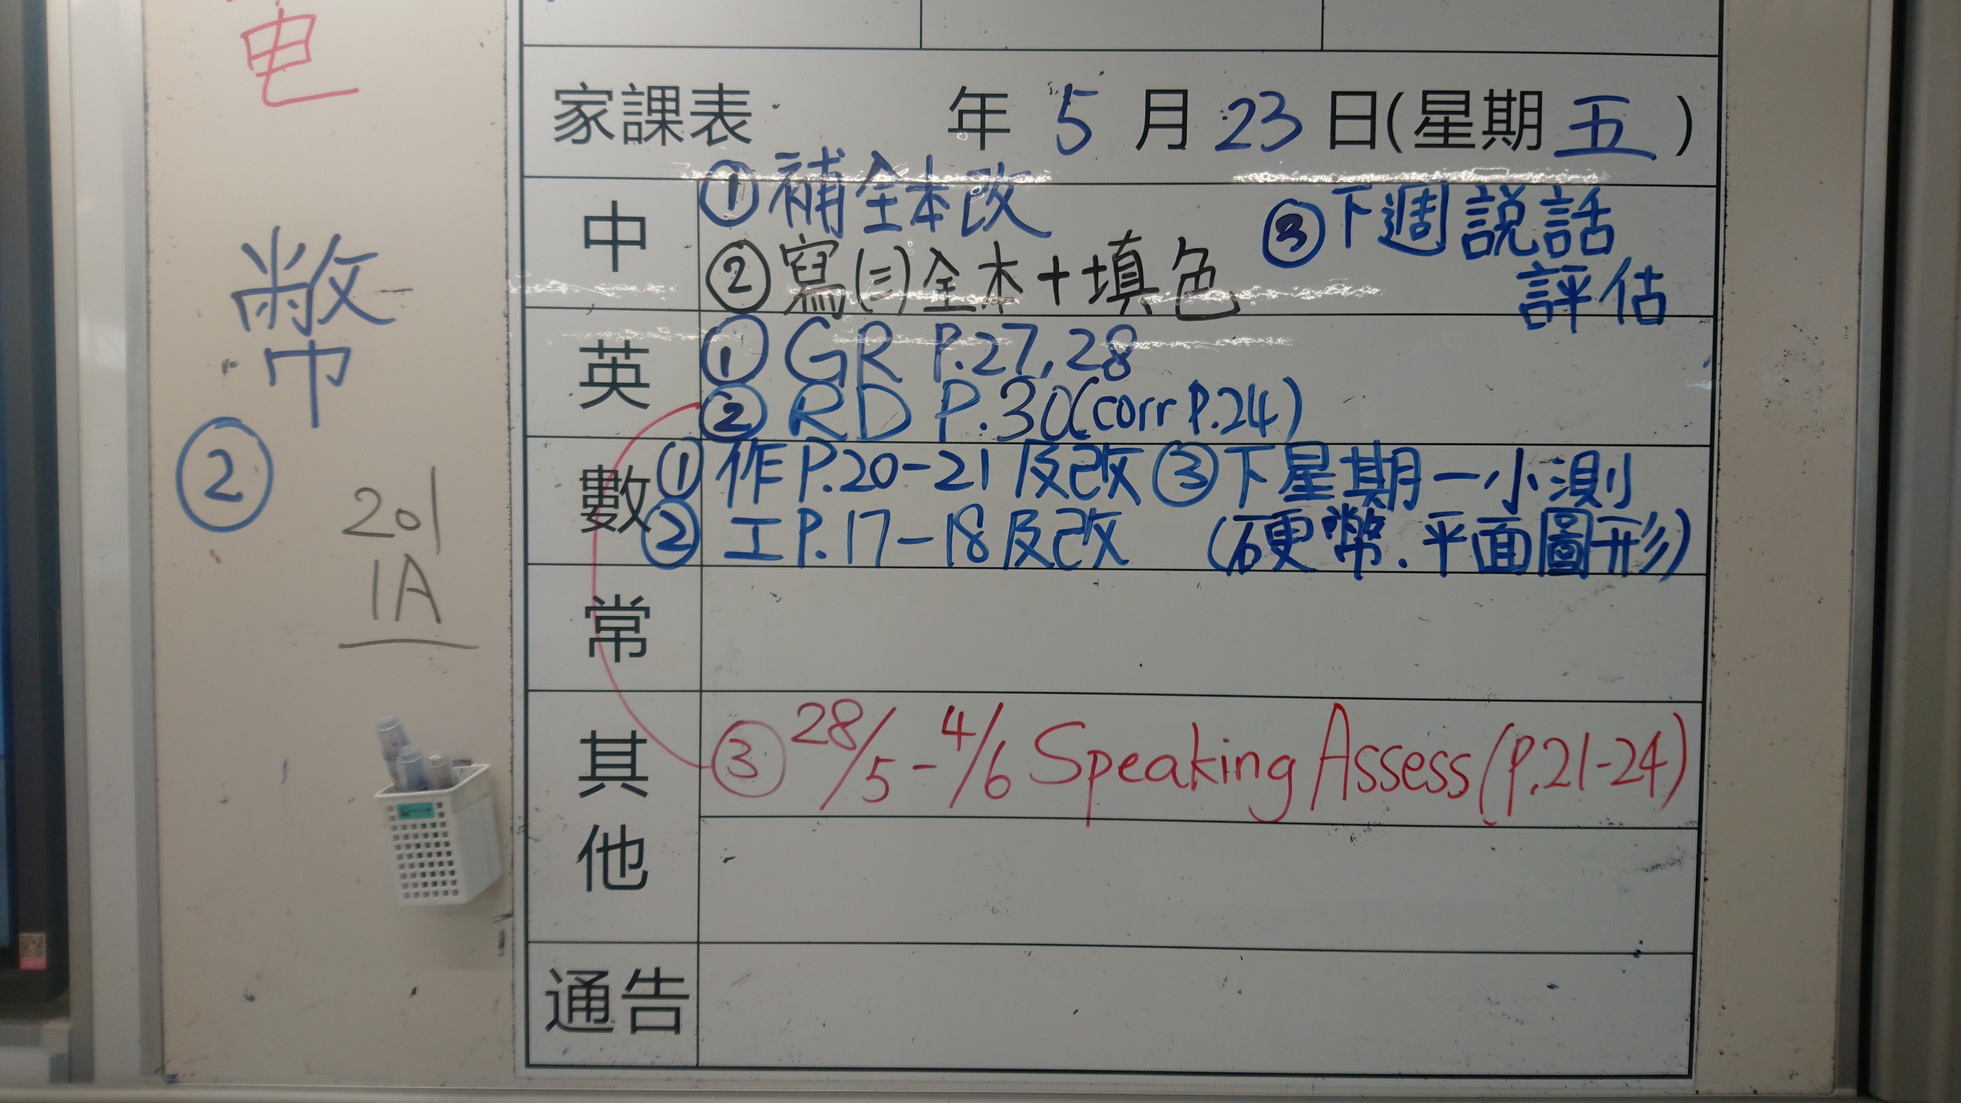 電
幣
②
201
1A
家課表 年 5 月 23 日(星期 五 )
中
①補全本改
②寫(三)全本+填色
③下週說話
評估
英
① GR P.27,28
② RD P.30(corr P.24)
數
①作P.20-21反改 ③下星期一小測
②工P.17-18反改 (硬幣.平面圖形)
常
其他
③ 28/5-4/6 Speaking Assess(p.21-24)
通告